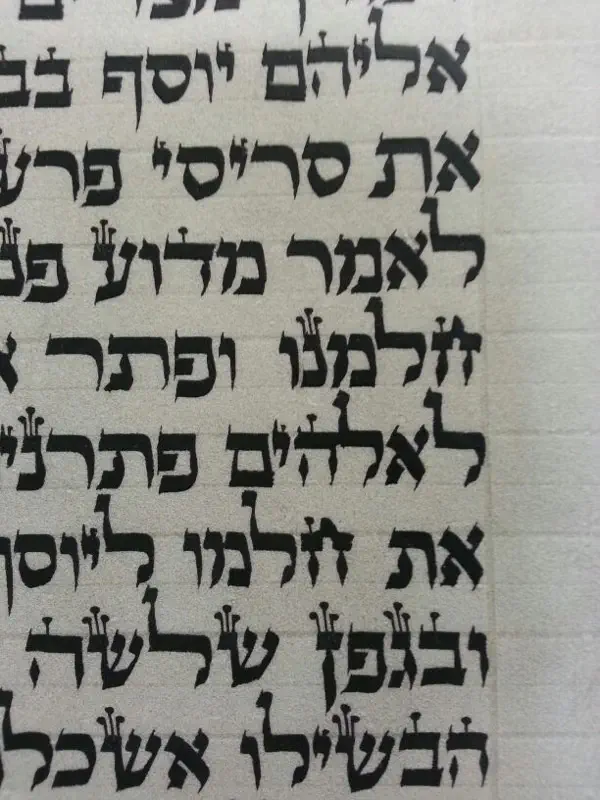 אליהם יוסף בב
את סריסי פרע
לאמר מדוע פנ
חלמנו ופתר א
לאלהים פתרני
את חלמו ליוסף
ובגפן שלשה
הבשילו אשכל